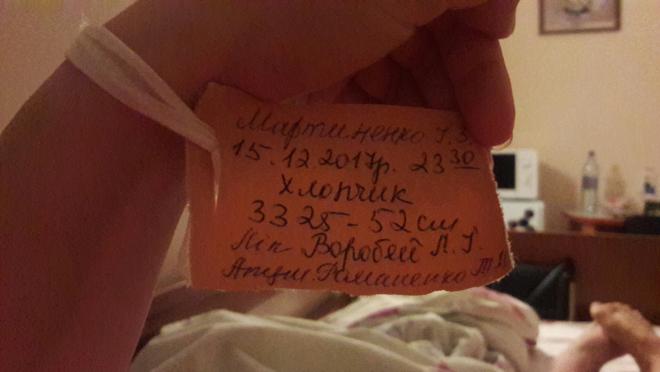 Мартиненко Г.З.
15.12.2017р. 23³⁰
хлопчик
3325 - 52 см
Лік Воробей Л.Г.
Акуш. Романенко Т.